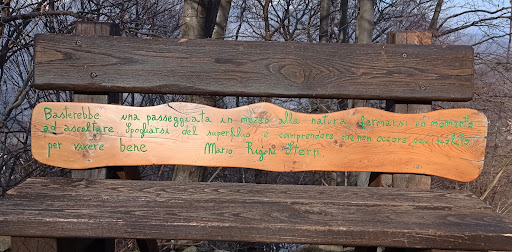 Basterebbe una passeggiata in mezzo alla natura fermarsi un momento
ad ascoltare spogliarsi del superfluo e comprendere che non occore poi
per vivere bene Mario Rigoni Stern